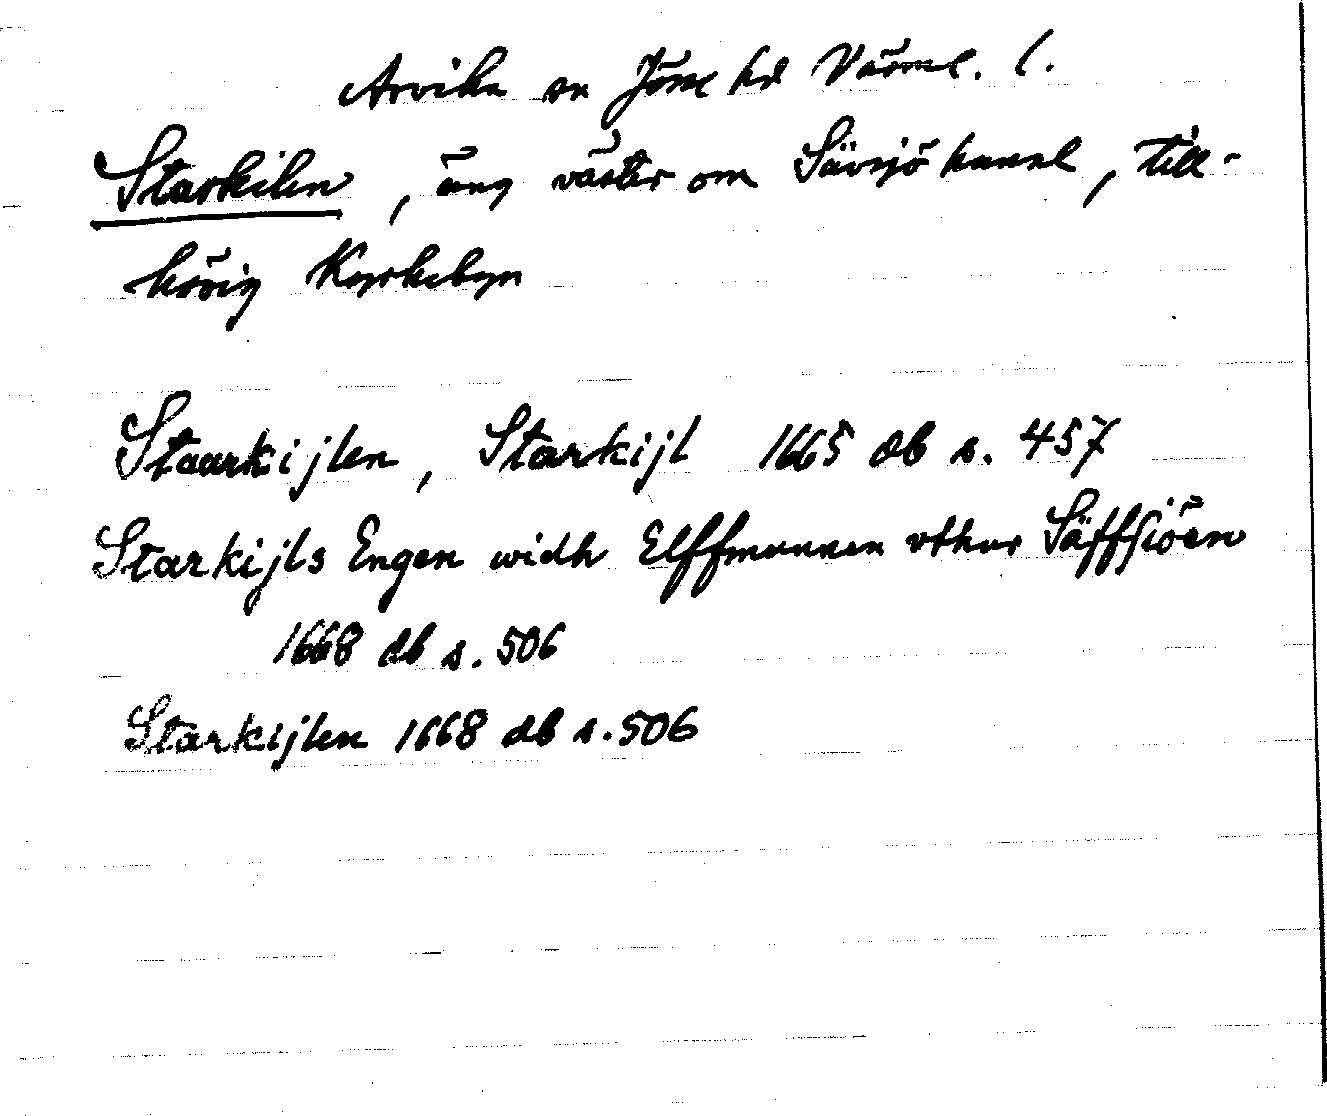 Arvika sn Jösse hd Värml. l.
Starkilen, äng väster om Sävsjö kanal, till-
hörig Kyrkebyn
Staarkijlen, Starkijl 1665 db s. 457
Starkijls Engen widh Elffmunnen vthur Säffsiöen
1668 db s. 506
Starkijlen 1668 db s. 506